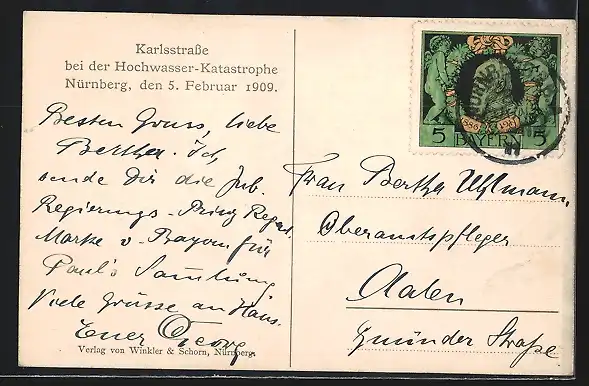 Karlsstraße
bei der Hochwasser-Katastrophe
Nürnberg, den 5. Februar 1909.
Besten Gruss, liebe
Bertha. Ich
sende Dir die Jub.
Regierungs-Prinz Regent
Marke v. Bayern für
Paul's Sammlung
Viele Grüsse an Hans.
Euer Georg
Verlag von Winkler & Schorn, Nürnberg.
1886 1911
5 BAYERN 5
Frau Bertha Uhlmann,
Oberamtspfleger
Aalen
Gmünder Straße